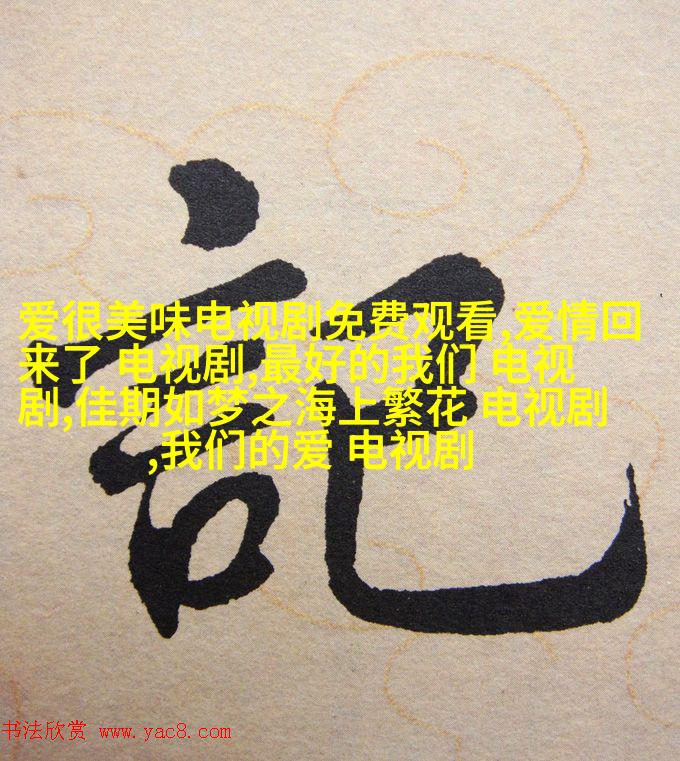 記
爱很美味电视剧免费观看,爱情回
来了 电视剧,最好的我们 电视
剧,佳期如梦之海上繁花 电视剧
,我们的爱 电视剧
书法欣赏 www.yac8.com